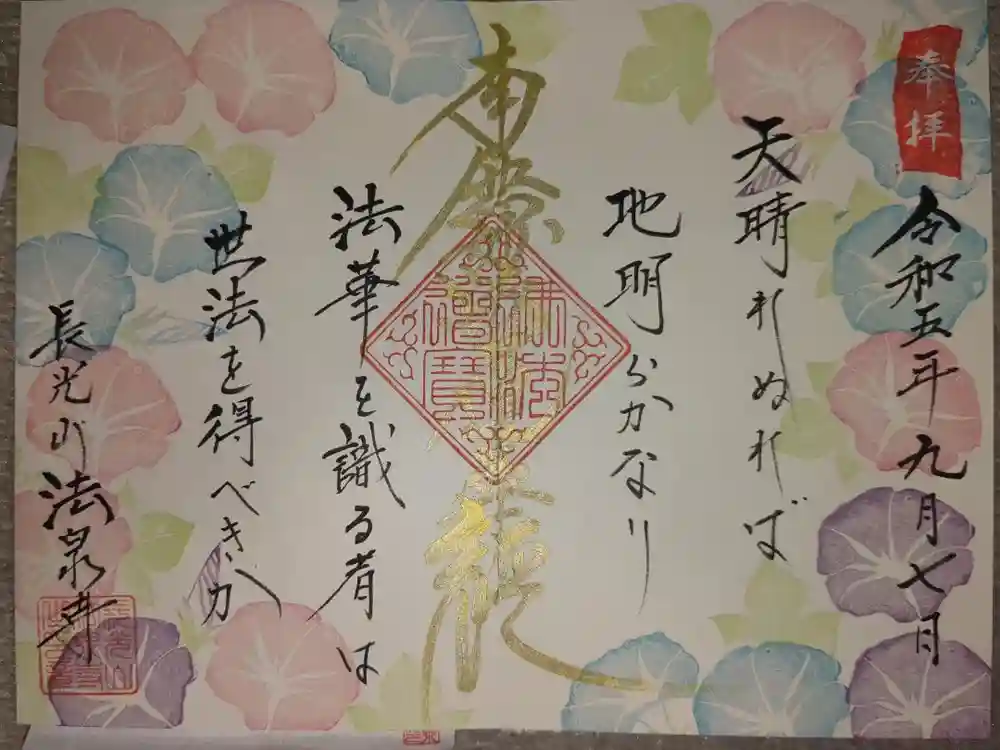 奉拝
令和五年九月七日
天晴れぬれば
地明らかなり
南無
佛法僧寶
法華を識る者は
世法を得べきか
長光山法泉寺